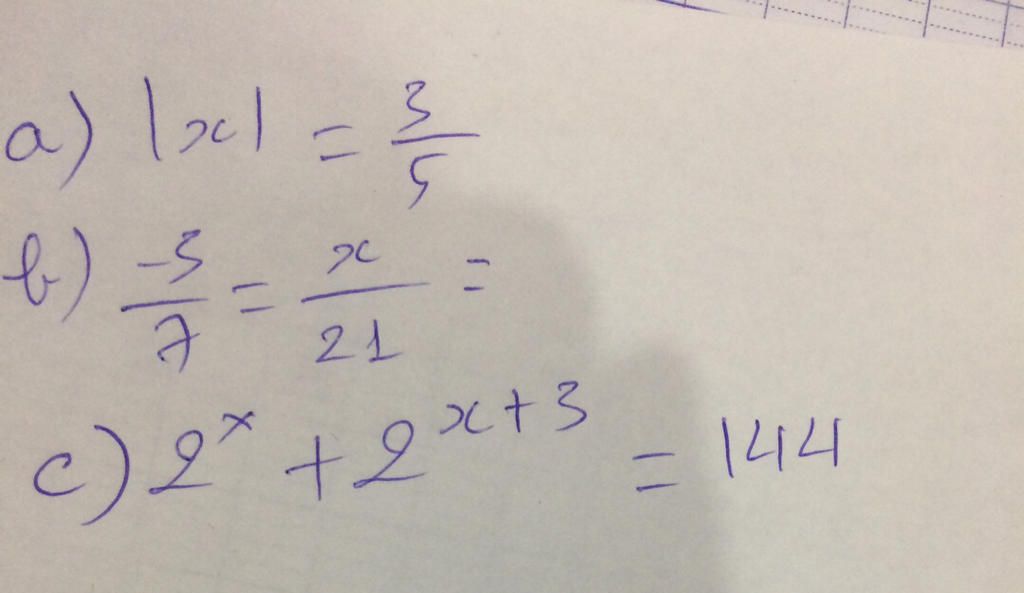 a) |x| = 3/5
b) -3/7 = x/21 =
c) 2^x + 2^(x+3) = 144